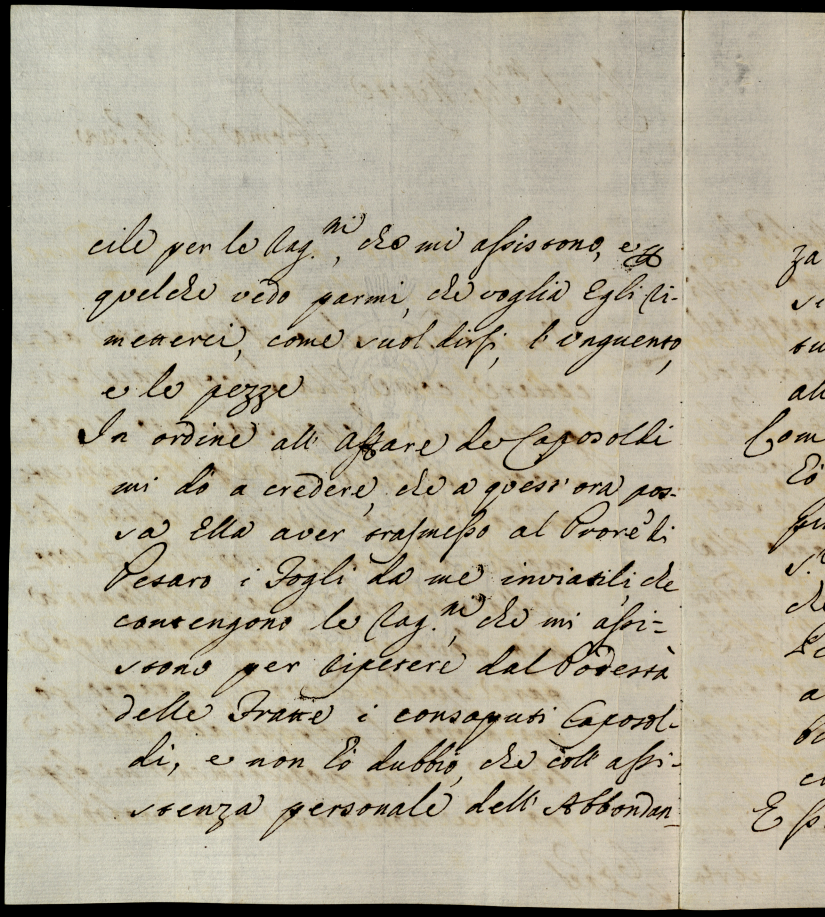 cile per le Rag.ni, che mi assistono, e p
quelche vedo parmi, che voglia Egli ri-
metterci, come suol dirsi, l'unguento,
e le pezze
In ordine all'Affare de Caposoldi
mi dò a credere, che a quest'ora pos-
sa Ella aver trasmesso al Prore di
Pesaro i Fogli da me inviatili, che
contengono le Rag.ni che mi assi-
stono per ripetere dal Podestà
delle Fratte i consaputi Caposol-
di, e non hò dubbio, che coll'assi-
stenza personale dell'Abbondan-
za
su
all
Com
hò
s.
che
a
E